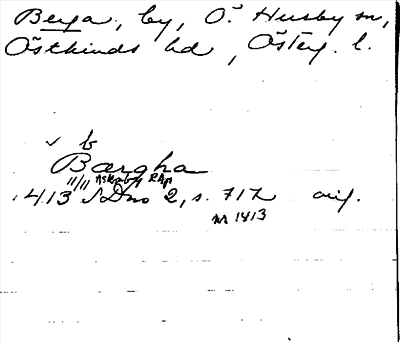 Berga, by, Ö. Husby sn,
Östkinds hd, Österg. l.
b
Bærgha
11/11 Askaby RAp
1413 SDno 2, s. 717 orig.
nr 1413